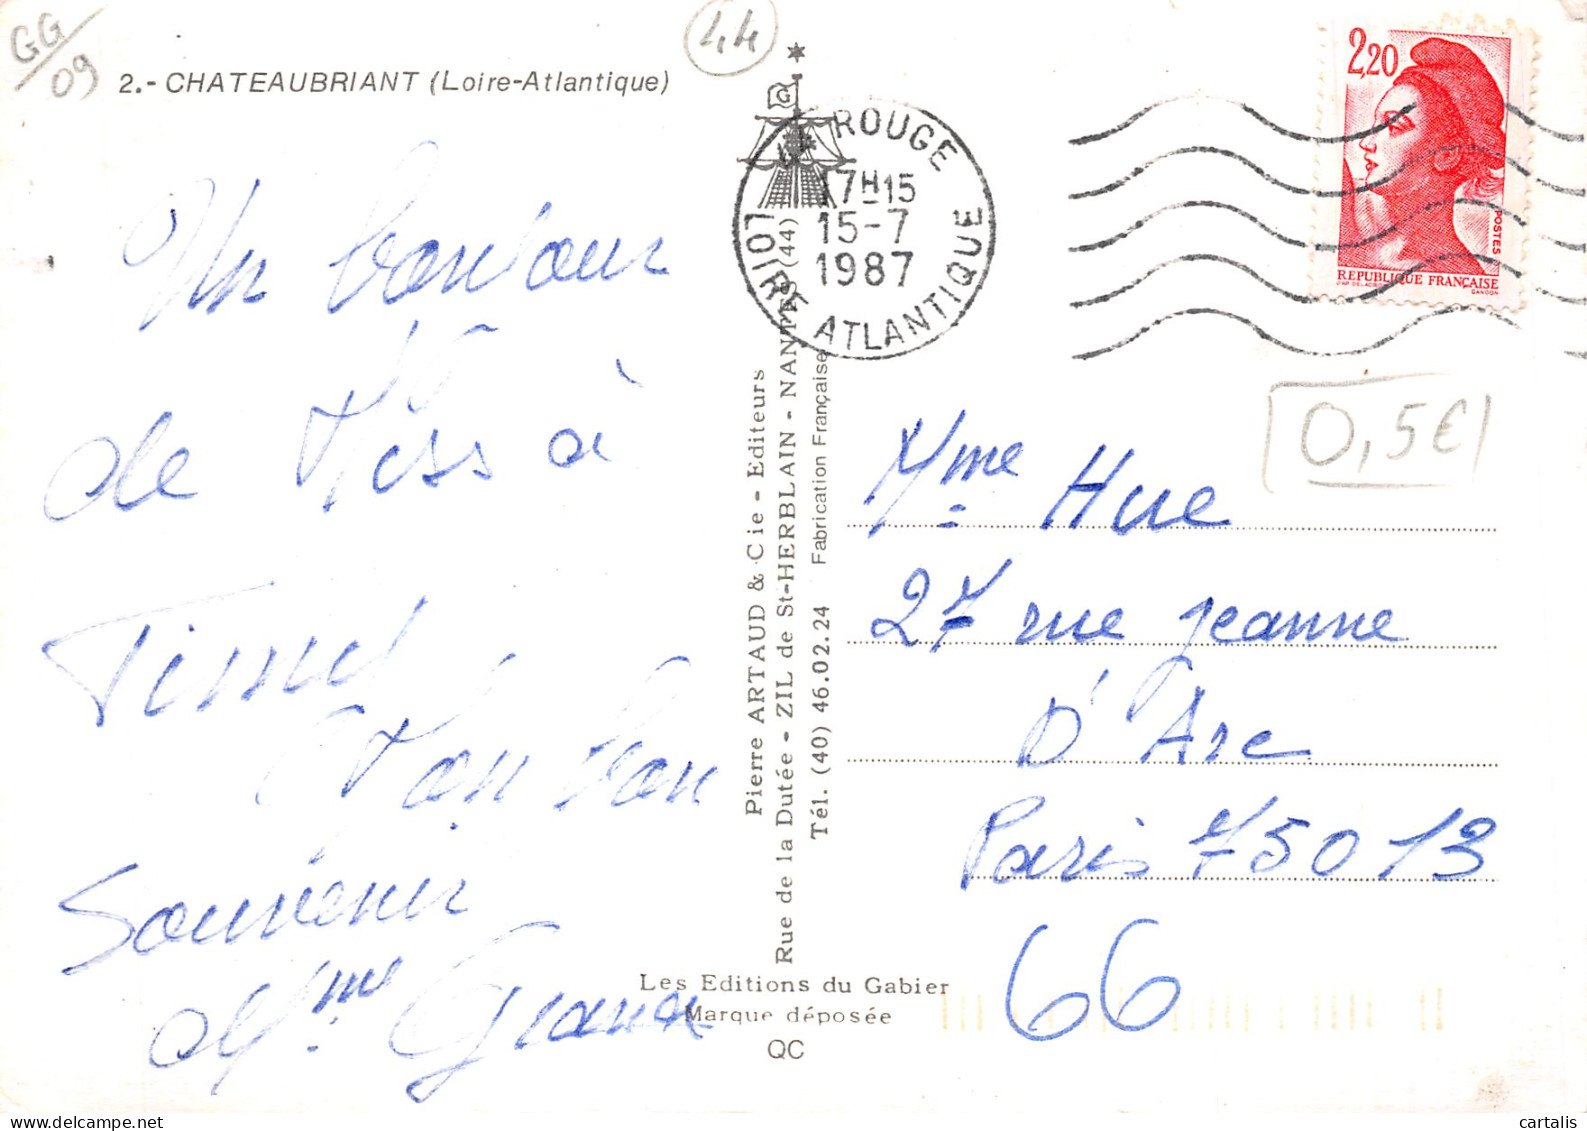 GG/09
2.- CHATEAUBRIANT (Loire-Atlantique)
44
ROUGE
17H15
15-7
1987
LOIRE ATLANTIQUE
2,20
POSTES
REPUBLIQUE FRANÇAISE
GANDON
0,5€
Un bonjour
de à
bon
Souvenir
Mme
Pierre ARTAUD & Cie - Editeurs
Rue de la Dutée - ZIL de St-HERBLAIN - NANTES (44)
Tél. (40) 46.02.24 Fabrication Française
Mme Hue
27 rue Jeanne
D'Arc
Paris 75013
66
Les Editions du Gabier
Marque déposée
QC
cartalis